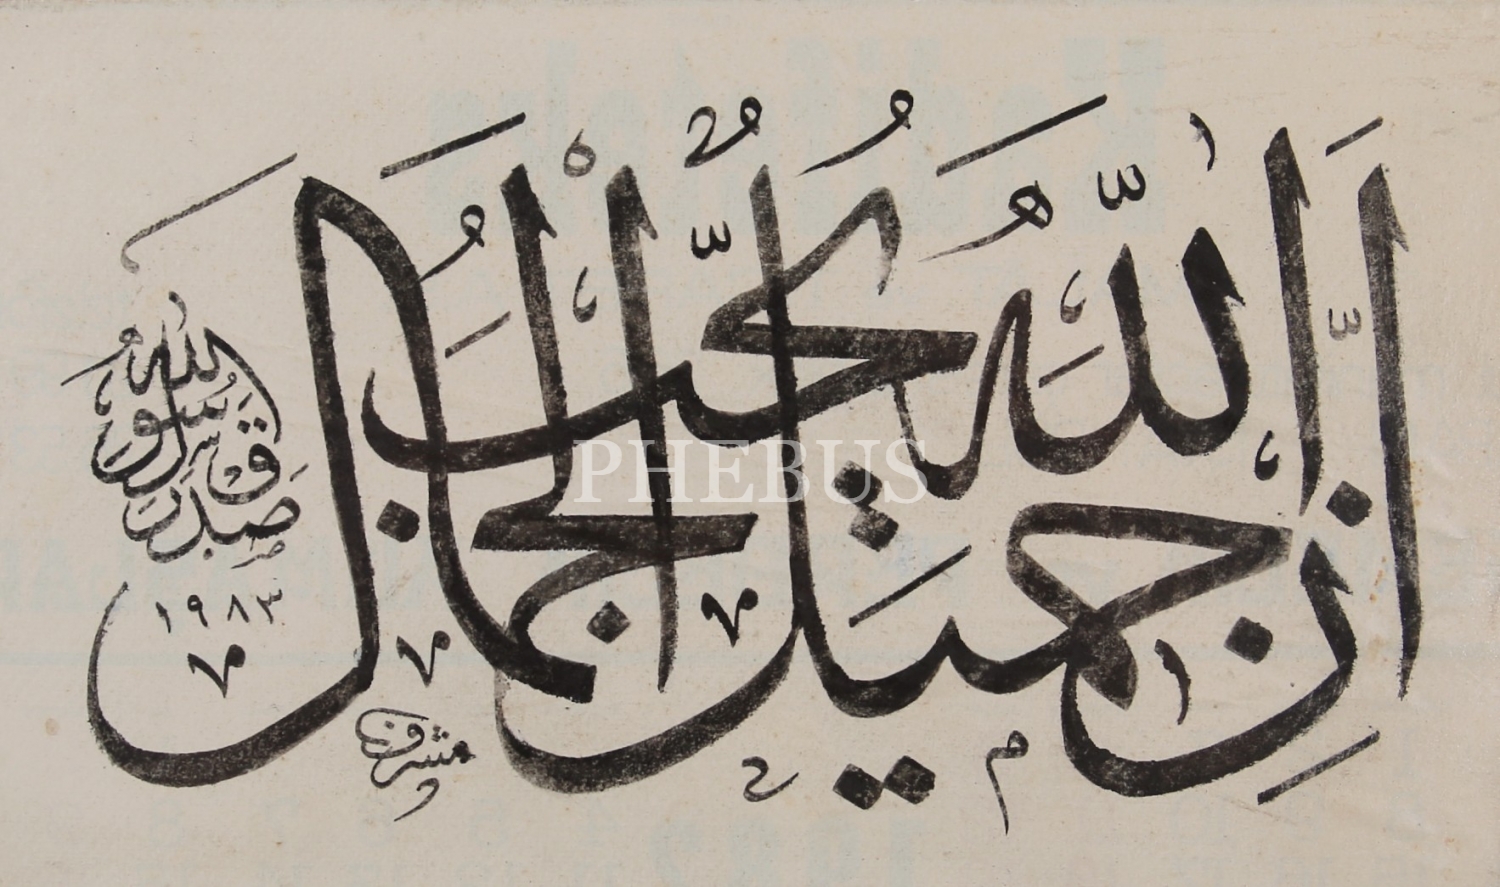 إِنَّ اللّٰهَ جَمِيلٌ يُحِبُّ الْجَمَالَ
صدق رسول الله
١٩٨٣
PHEBUS